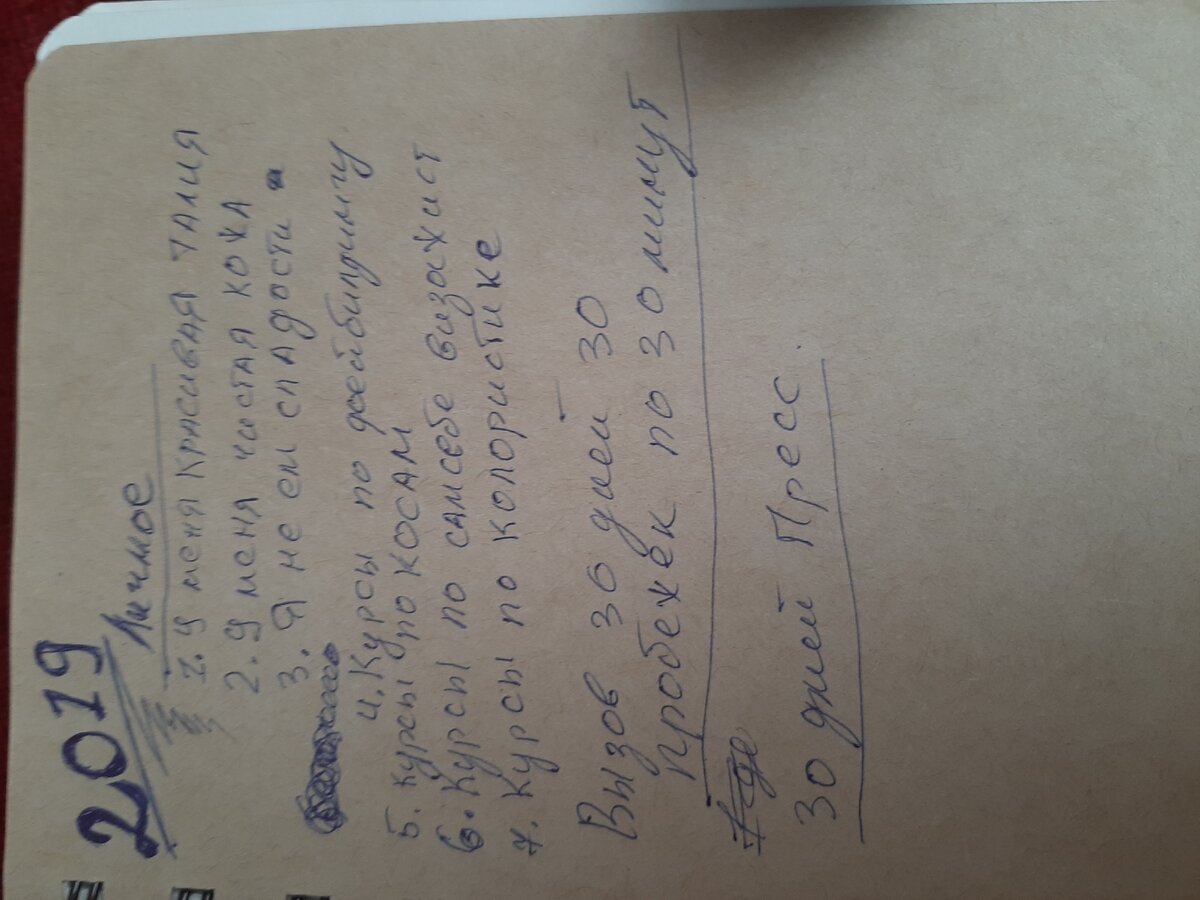 2019
Личное
1. У меня красивая талия
2. У меня чистая кожа
3. Я не ем сладости
4. Курсы по фейбилдингу
5. Курсы по косам
6. Курсы по самсебе визажист
7. Курсы по колористике
Вызов 30 дней 30
пробежек по 30 минут
30 дней Пресс.